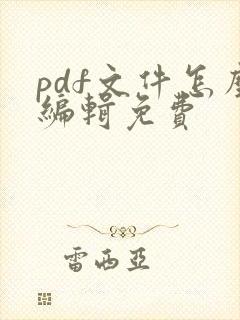 pdf文件怎麼
編輯免費
雷西亞